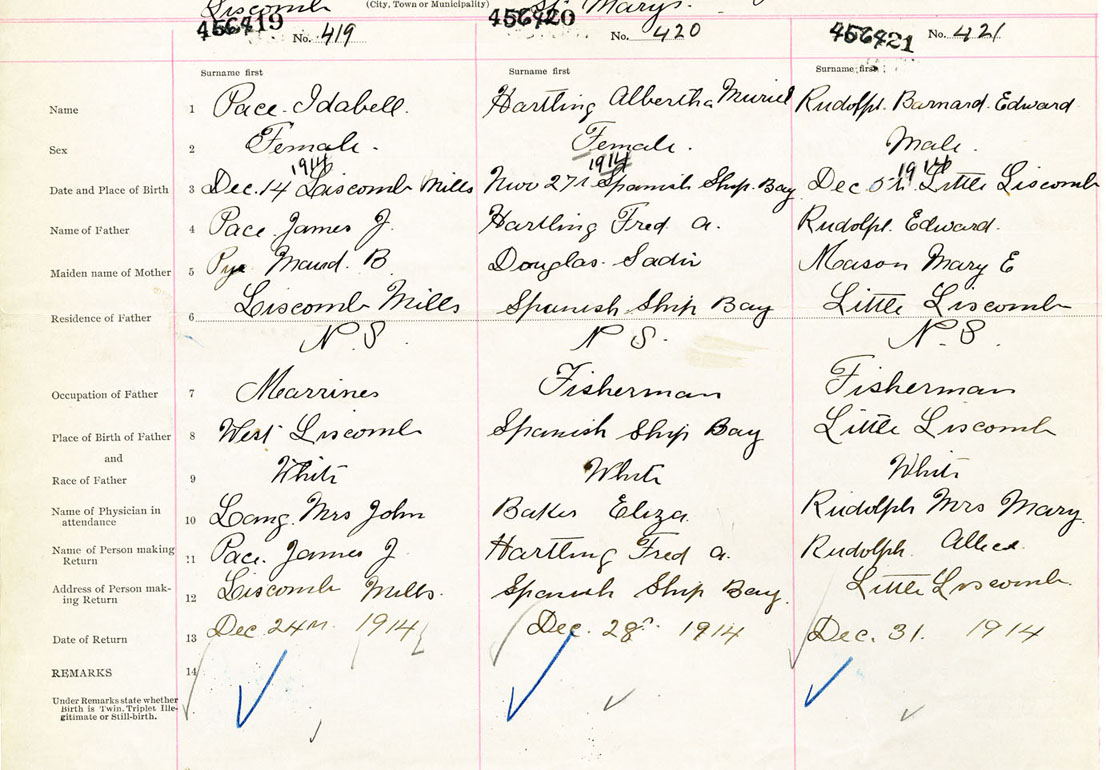 Liscomb (City, Town or Municipality) St. Marys.
456419 No. 419 456420 No. 420 456421 No. 421
Surname first Surname first Surname first
Name 1 Pace. Idabell. Hartling Albertha Muriel Rudolph. Barnard. Edward
Sex 2 Female. Female. Male.
1914 1914 1914
Date and Place of Birth 3 Dec. 14 Liscomb Mills Nov 27th Spanish Ship. Bay Dec 5th Little Liscomb
Name of Father 4 Pace. James J. Hartling Fred A. Rudolph. Edward.
Maiden name of Mother 5 Pye Maud. B. Douglas. Sadie Mason Mary E
Liscomb Mills Spanish Ship Bay Little Liscomb
Residence of Father 6
N.S. N S. N.S.
Occupation of Father 7 Marrines Fisherman Fisherman
Place of Birth of Father 8 West Liscomb Spanish Ship Bay Little Liscomb
and
Race of Father 9 White White White
Name of Physician in attendance 10 Lang. Mrs John Baker Eliza. Rudolph Mrs Mary.
Name of Person making Return 11 Pace. James J. Hartling Fred A. Rudolph.
Address of Person making Return 12 Liscomb Mills. Spanish Ship Bay. Little Liscomb.
Date of Return 13 Dec. 24th 1914 Dec. 28th 1914 Dec. 31. 1914
REMARKS 14
Under Remarks state whether
Birth is Twin, Triplet Ille-
gitimate or Still-birth.